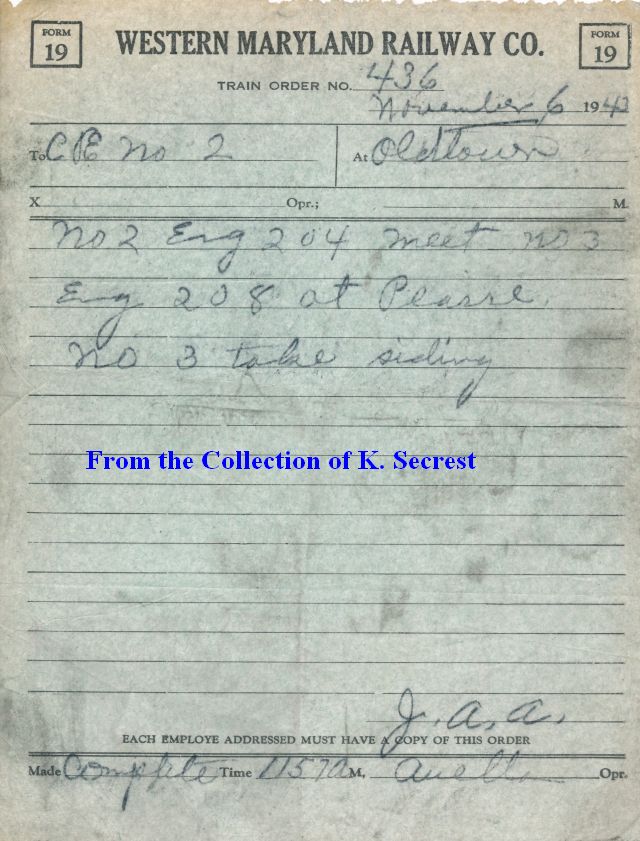 FORM 19
WESTERN MARYLAND RAILWAY CO.
FORM 19
TRAIN ORDER NO. 436
November 6 1943
To C&E No 2 At Oldtown
X Opr.; M.
No 2 Eng 204 meet no 3
Eng 208 at Pearre
No 3 take siding
From the Collection of K. Secrest
J.A.A.
EACH EMPLOYE ADDRESSED MUST HAVE A COPY OF THIS ORDER
Made Complete Time 1157A M. Opr.